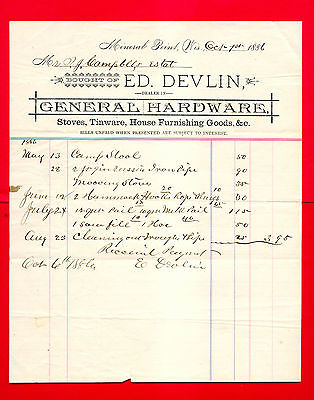 Mineral Point, Wis. Oct 1st 1886
Mr. P. J. Campbells Estat
BOUGHT OF ED. DEVLIN,
DEALER IN
GENERAL HARDWARE,
Stoves, Tinware, House Furnishing Goods, &c.
BILLS UNPAID WHEN PRESENTED ARE SUBJECT TO INTEREST.
1886
May 13 Camp Stool 50
22 2 Russia Iron Pipe 90
Mooving Stove 35
June 2 Hammock Hooks 20 Rope 10
July 24 Pail Pail 115
1 Saw file 10 1 Hoe 40 50
Aug 23 Cleaning out Troughs & Pipe 25 3.95
Received Payment
Oct 6th 1886 E Devlin